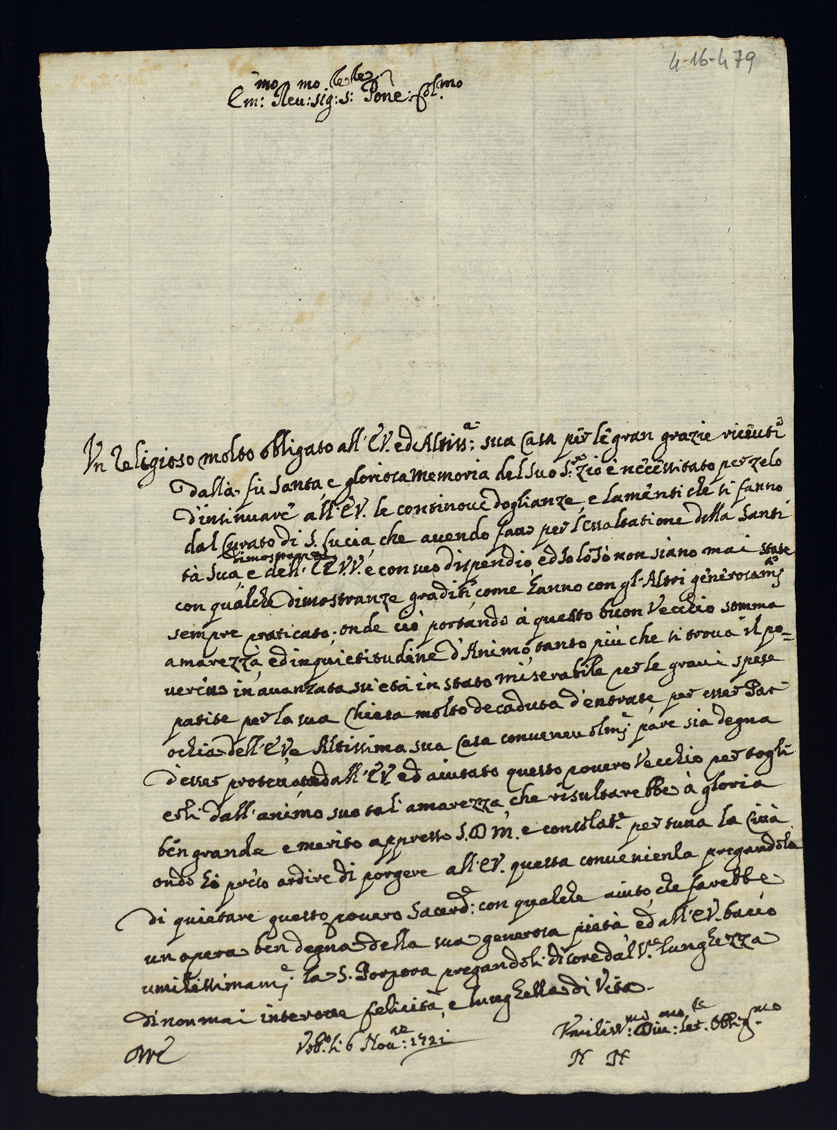 4-16-479
Em:mo Reu:mo sig:re s: Pone: Col:mo
Vn Religioso molto obbligato all'EV. ed Altiss:a sua Casa per le gran grazie riceuti
dalla fù santa e gloriosa memoria del suo S.r zio è necessitato per zelo
d'insinuare all'EV. le continoue doglianze, e lamenti che si fanno
dal Curato di S. Lucia, che auendo fatto per l'essaltatione della Santi
dimostranze
tà sua, e dell'EV. e con suo dispendio, ed solo sò non siano mai state
con qualche dimostranze graditi, come hanno con gl'Altri generosam.e
sempre praticato; onde ciò portando à questo buon Vecchio somma
amarezza ed inquietitudine d'Animo, tanto più che si troua il po=
uerino in auanzata sū età in stato miserabile per le graui spese
patite per la sua Chiesa molto decaduta d'entrate, per esser Par
ochia dell'EV e Altissima sua Casa pare sia degna
d'esser dall'EV. ed aiutato questo pouero Vecchio per togli
erli dall'animo suo tal'amarezza, che risultarebbe à gloria
ben grande e merito appresso S. D. M. e consolat.e per tutta la Città
onde hò preso ardire di porgere all'EV. questa conuenienza pregandola
di quietare questo pouero Sacerd.e: con qualche aiuto, che sarebbe
un opera ben degna della sua generosa pietà, ed all'EV. bacio
umilissimam.e la S. Porpora pregandoli di core dal lunghezza
di non mai interotte felicità, e lunghezza di Vita.
Vrb.o li 6 Nou:re 1721
Vmiliss:mo Diu:mo Set. Obblig:mo
N N